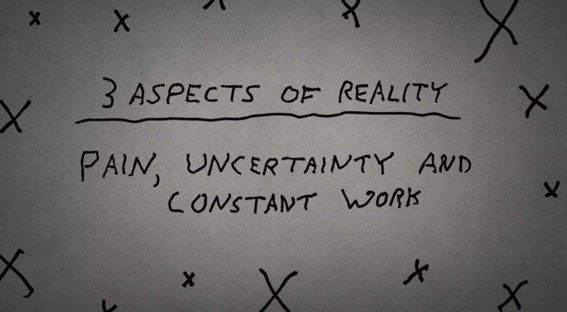 3 ASPECTS OF REALITY
PAIN, UNCERTAINTY AND
CONSTANT WORK